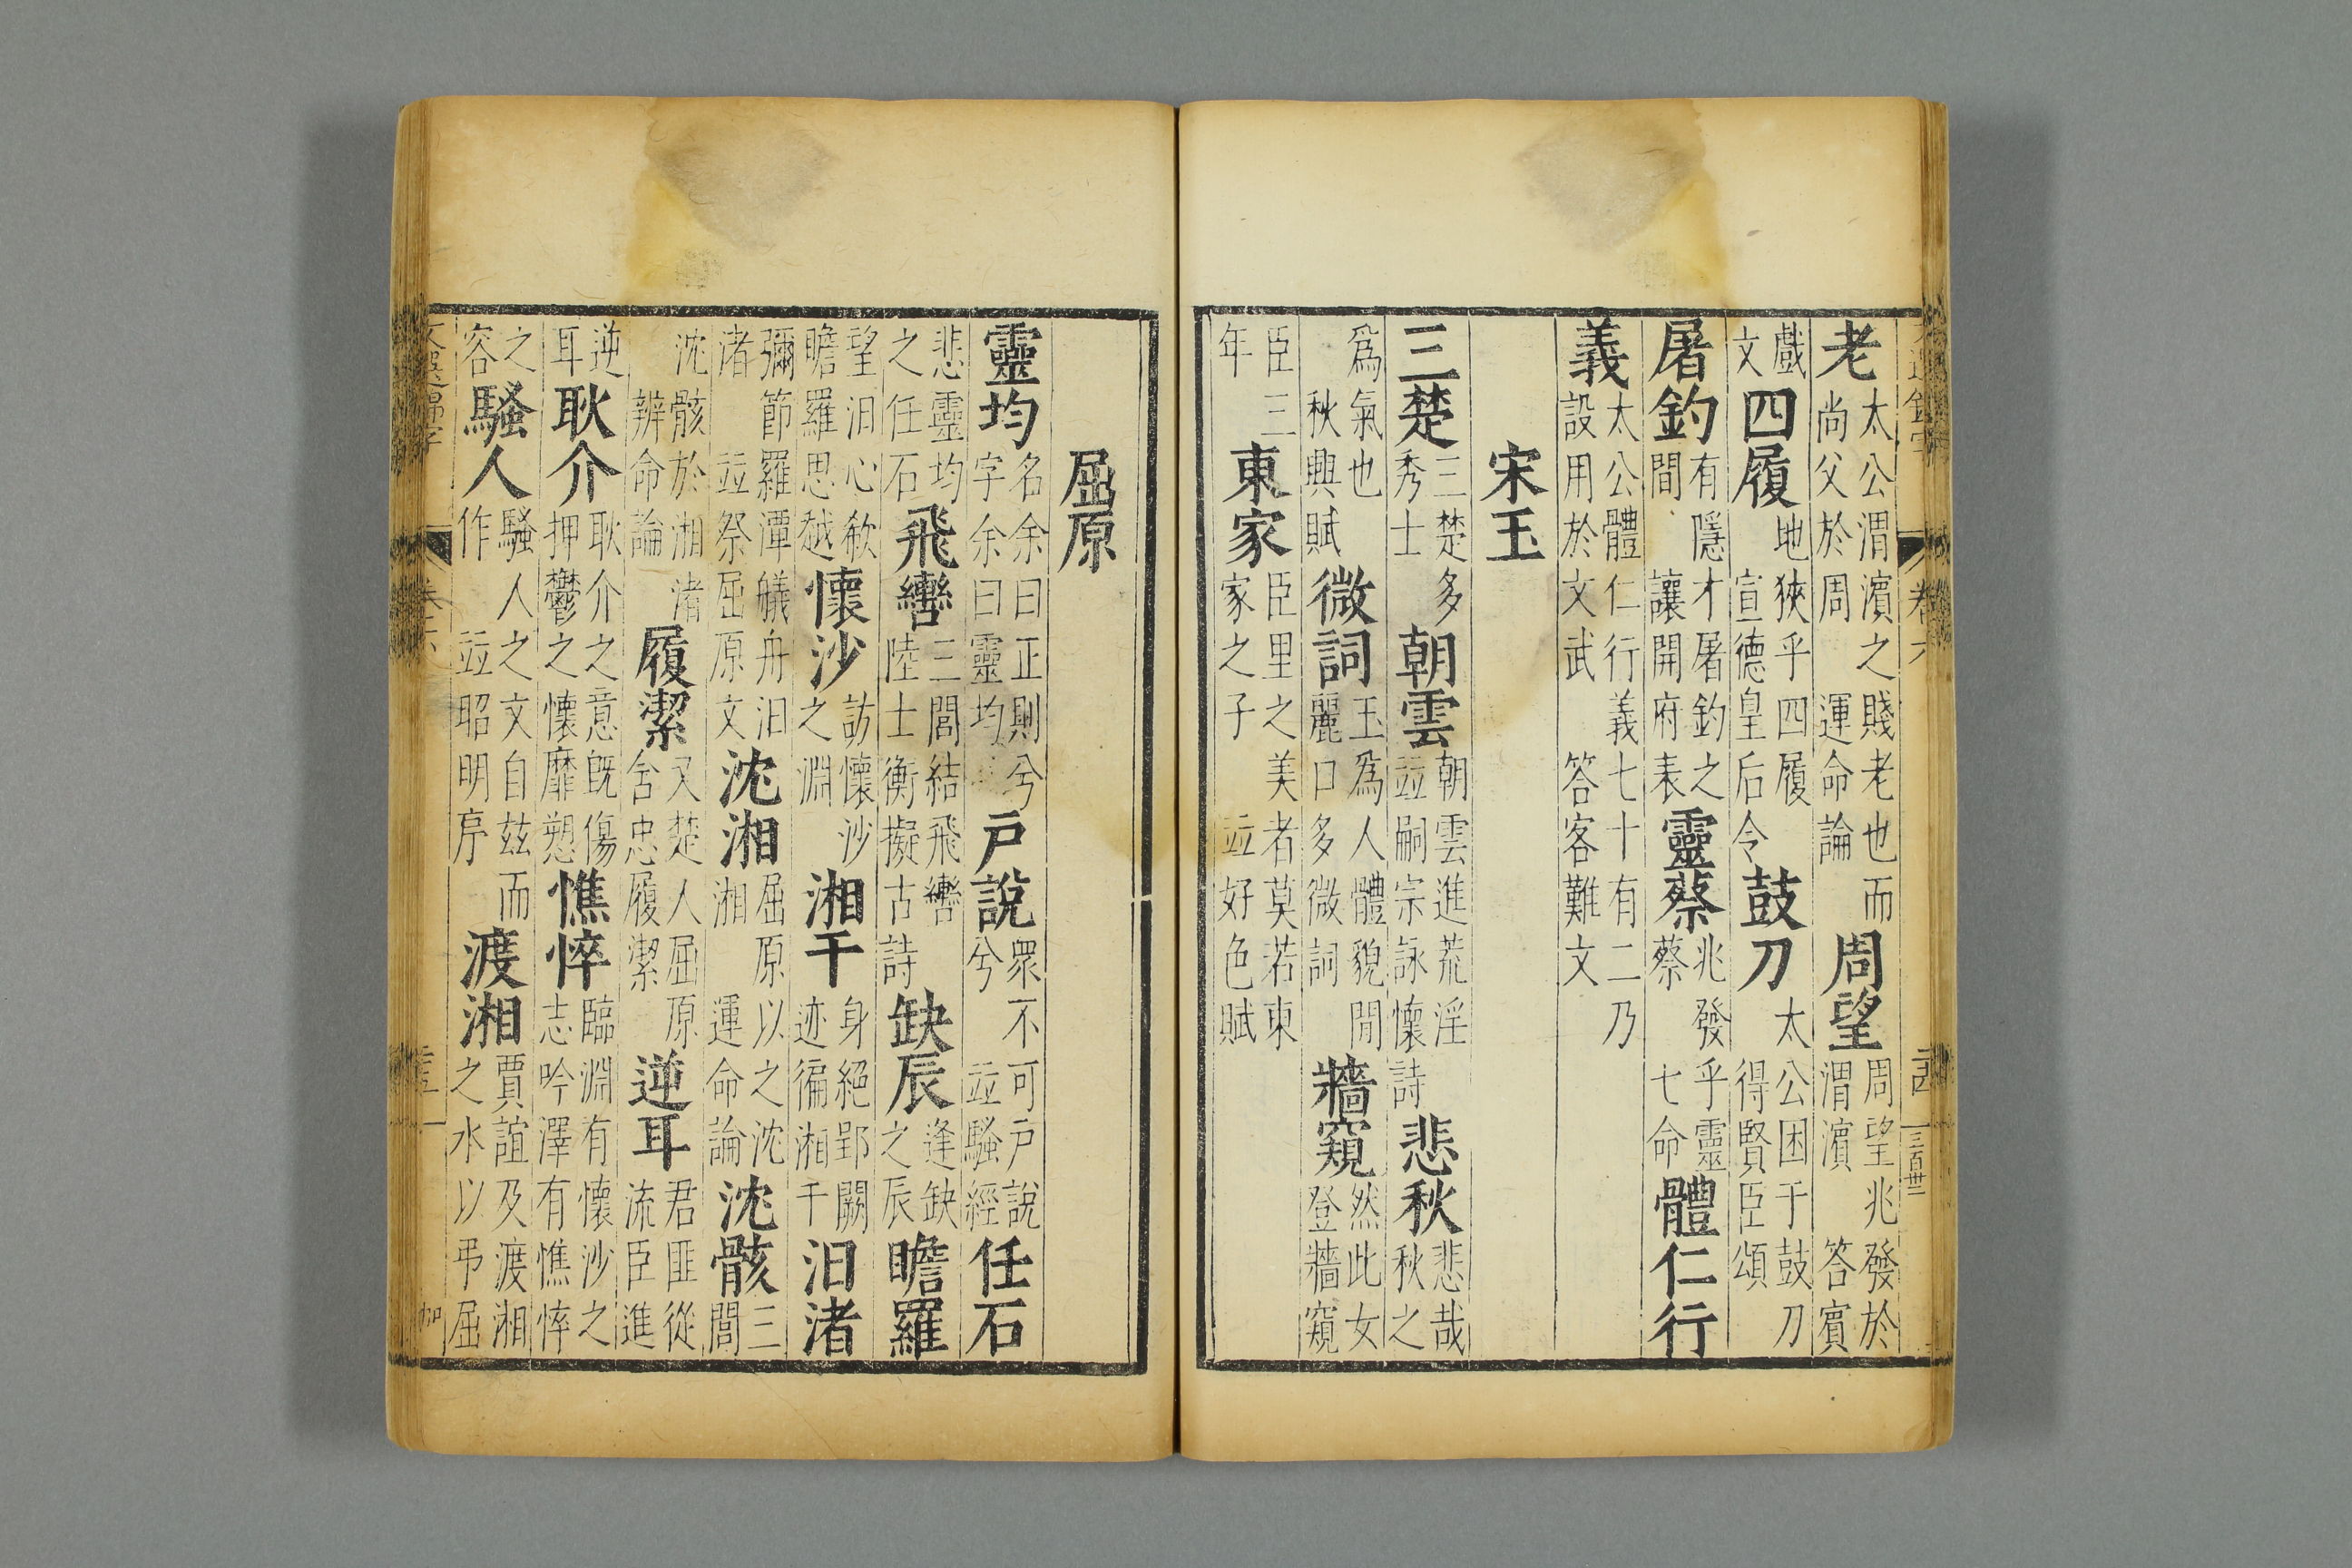 老太公渭濱之賤老也而尚父於周　運命論周望周望兆發於渭濱　答賓
戲文四履地狹乎四履宣德皇后令鼓刀太公困于鼓刀得賢臣頌
屠釣有隱才屠釣之間　讓開府表靈蔡兆發乎靈蔡　七命體仁行
義太公體仁行義七十有二乃設用於文武　答客難文
宋玉
三楚三楚多秀士朝雲朝雲進荒淫並嗣宗詠懷詩悲秋悲哉秋之
爲氣也秋興賦微詞玉爲人體貌閒麗口多微詞牆窺然此女登牆窺
臣三年東家臣里之美者莫若東家之子　並好色賦
卷六
屈原
靈均名余曰正則兮字余曰靈均戶說眾不可戶說兮　並騷經任石
悲靈均之任石飛轡三閭結飛轡陸士衡擬古詩缺辰逢缺之辰瞻羅
望汨心欷瞻羅思越懷沙訪懷沙之淵湘干身絕郢闕迹徧湘干汨渚
彌節羅潭艤舟汨渚　並祭屈原文沈湘屈原以之沈湘　運命論沈骸三閭
沈骸於湘渚辨命論履潔又楚人屈原舍忠履潔逆耳君匪從流臣進
逆耳耿介耿介之意既傷押鬱之懷靡愬憔悴臨淵有懷沙之志吟澤有憔悴
之容騷人騷人之文自茲而作　並昭明序渡湘賈誼及渡湘之水以弔屈
文選錦字